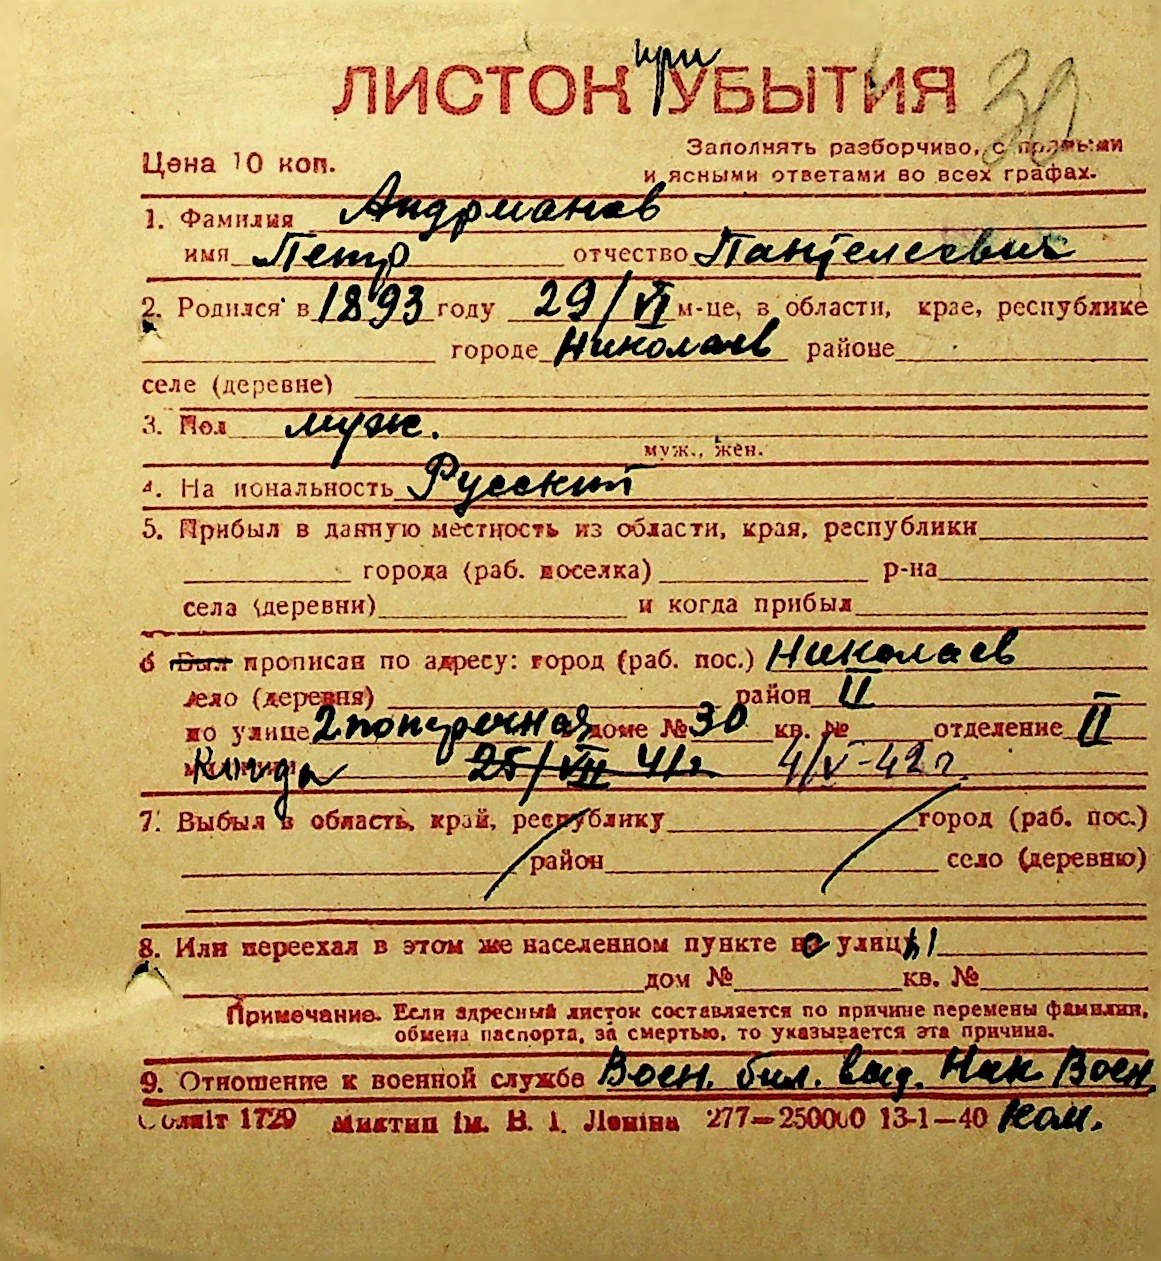 при
ЛИСТОК УБЫТИЯ 30
Цена 10 коп.
Заполнять разборчиво, с прямыми
и ясными ответами во всех графах.
1. Фамилия Андрианов
имя Петр отчество Пантелеевич
2. Родился в 1893 году 29/VI м-це, в области, крае, республике
городе Николаев районе
селе (деревне)
3. Пол муж.
муж., жен.
4. На иональность Русский
5. Прибыл в данную местность из области, края, республики
города (раб. поселка) р-на
села (деревни) и когда прибыл
6 Был прописан по адресу: город (раб. пос.) Николаев
село (деревня) район II
по улице 2 поперечная доме № 30 кв. № отделение II
милиции Куда 25/VII 41г. 4/V-42 г
7. Выбыл в область, край, республику город (раб. пос.)
район село (деревню)
8. Или переехал в этом же населенном пункте с улицы
дом № кв. №
Примечание. Если адресный листок составляется по причине перемены фамилии,
обмена паспорта, за смертью, то указывается эта причина.
9. Отношение к военной службе Воен. бил. выд. Ник. Воен.
Ком.
Облліт 1729 Миктип ім. В. І. Леніна 277—250000 13-1—40